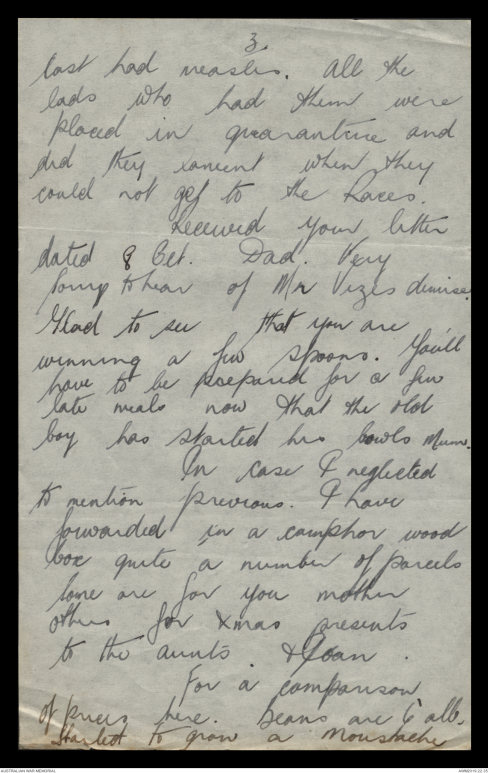 3.
last had measles. All the
lads who had them were
placed in quarantine and
did they lament when they
could not get to the Races.
Received your letter
dated 8 Oct. Dad. Very
sorry to hear of Mr Vizes demise.
Glad to see that you are
winning a few spoons. You'll
have to be prepared for a few
late meals now that the old
boy has started his bowls Mum.
In case I neglected
to mention previous. I have
forwarded in a camphor wood
box quite a number of parcels
some are for you mother
others for Xmas presents
to the aunts & Joan.
For a comparison
of prices here. Beans are 6d a lb.
Started to grow a moustache
AUSTRALIAN WAR MEMORIAL